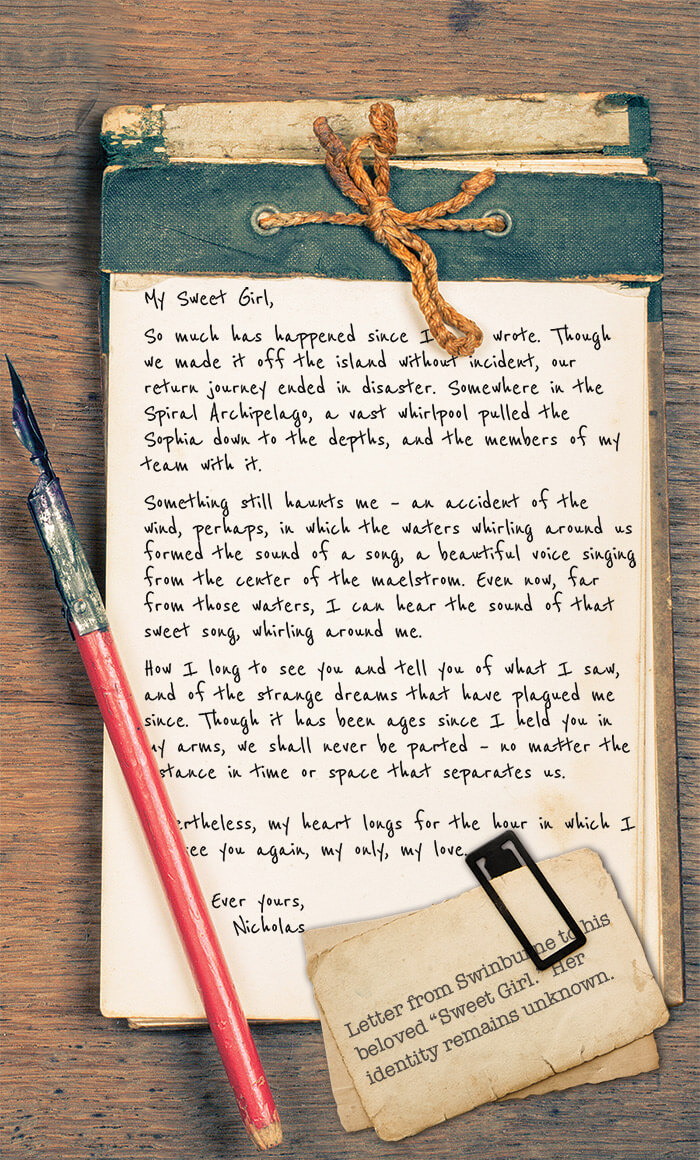 My Sweet Girl,
So much has happened since I wrote. Though
we made it off the island without incident, our
return journey ended in disaster. Somewhere in the
Spiral Archipelago, a vast whirlpool pulled the
Sophia down to the depths, and the members of my
team with it.
Something still haunts me - an accident of the
wind, perhaps, in which the waters whirling around us
formed the sound of a song, a beautiful voice singing
from the center of the maelstrom. Even now, far
from those waters, I can hear the sound of that
sweet song, whirling around me.
How I long to see you and tell you of what I saw,
and of the strange dreams that have plagued me
since. Though it has been ages since I held you in
my arms, we shall never be parted - no matter the
distance in time or space that separates us.
Nevertheless, my heart longs for the hour in which I
see you again, my only, my love.
Ever yours,
Nicholas
Letter from Swinburne to his
beloved "Sweet Girl." Her
identity remains unknown.